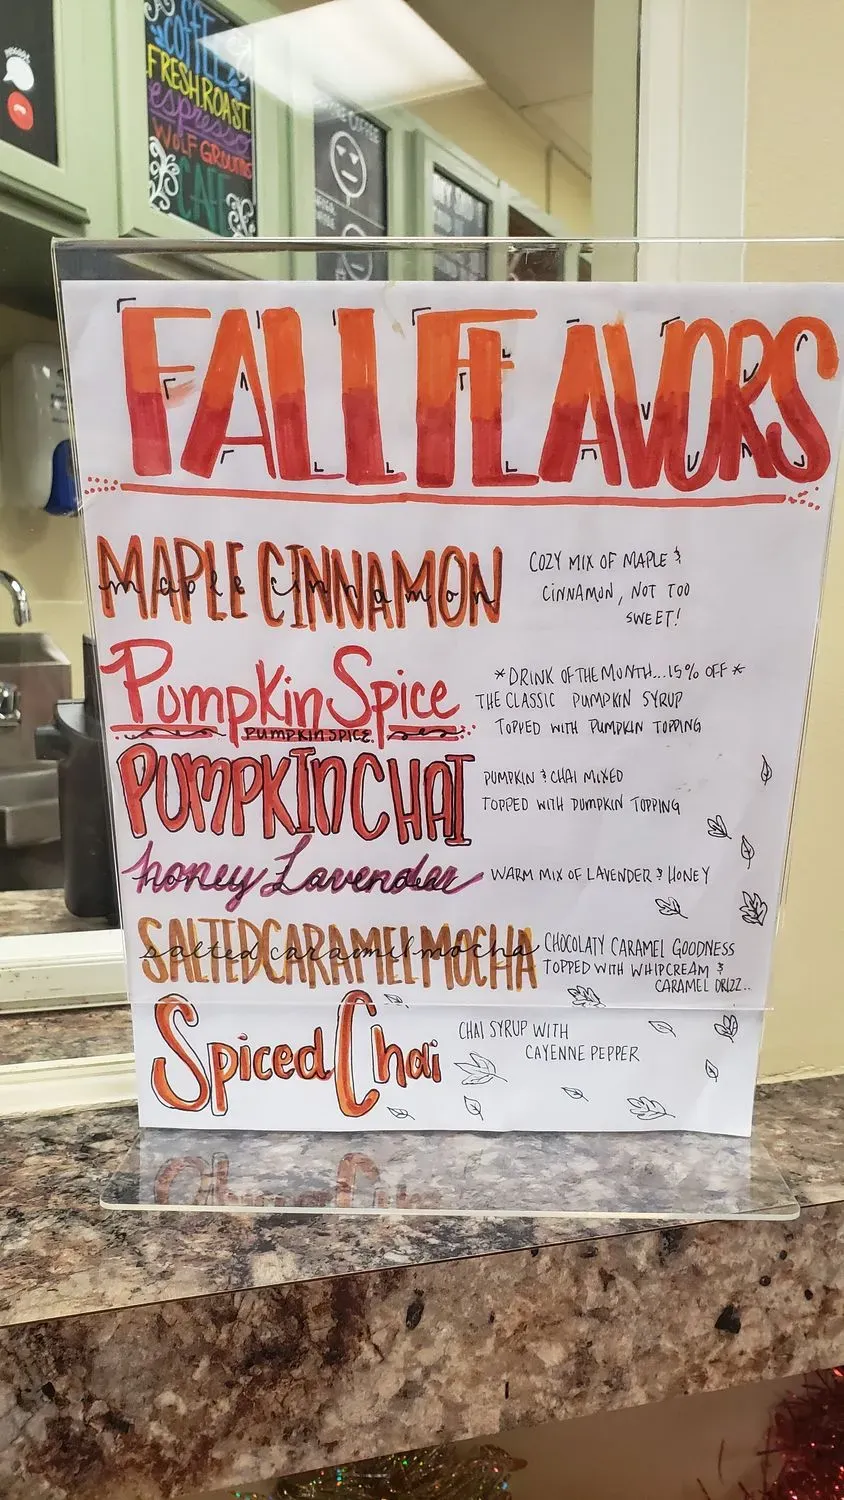 COFFEE
FRESH ROAST
espresso
WOLF GROUNDS
CAFE
COFFEE
FALL FLAVORS
MAPLE CINNAMON
maple cinnamon
COZY MIX OF MAPLE &
CINNAMON, NOT TOO
SWEET!
Pumpkin Spice
PUMPKIN SPICE
*DRINK OF THE MONTH...15% OFF*
THE CLASSIC PUMPKIN SYRUP
TOPPED WITH PUMPKIN TOPPING
PUMPKIN CHAI
PUMPKIN & CHAI MIXED
TOPPED WITH PUMPKIN TOPPING
honey Lavender
WARM MIX OF LAVENDER & HONEY
SALTED CARAMEL MOCHA
salted caramel mocha
CHOCOLATY CARAMEL GOODNESS
TOPPED WITH WHIPCREAM &
CARAMEL DRIZZ..
Spiced Chai
CHAI SYRUP WITH
CAYENNE PEPPER